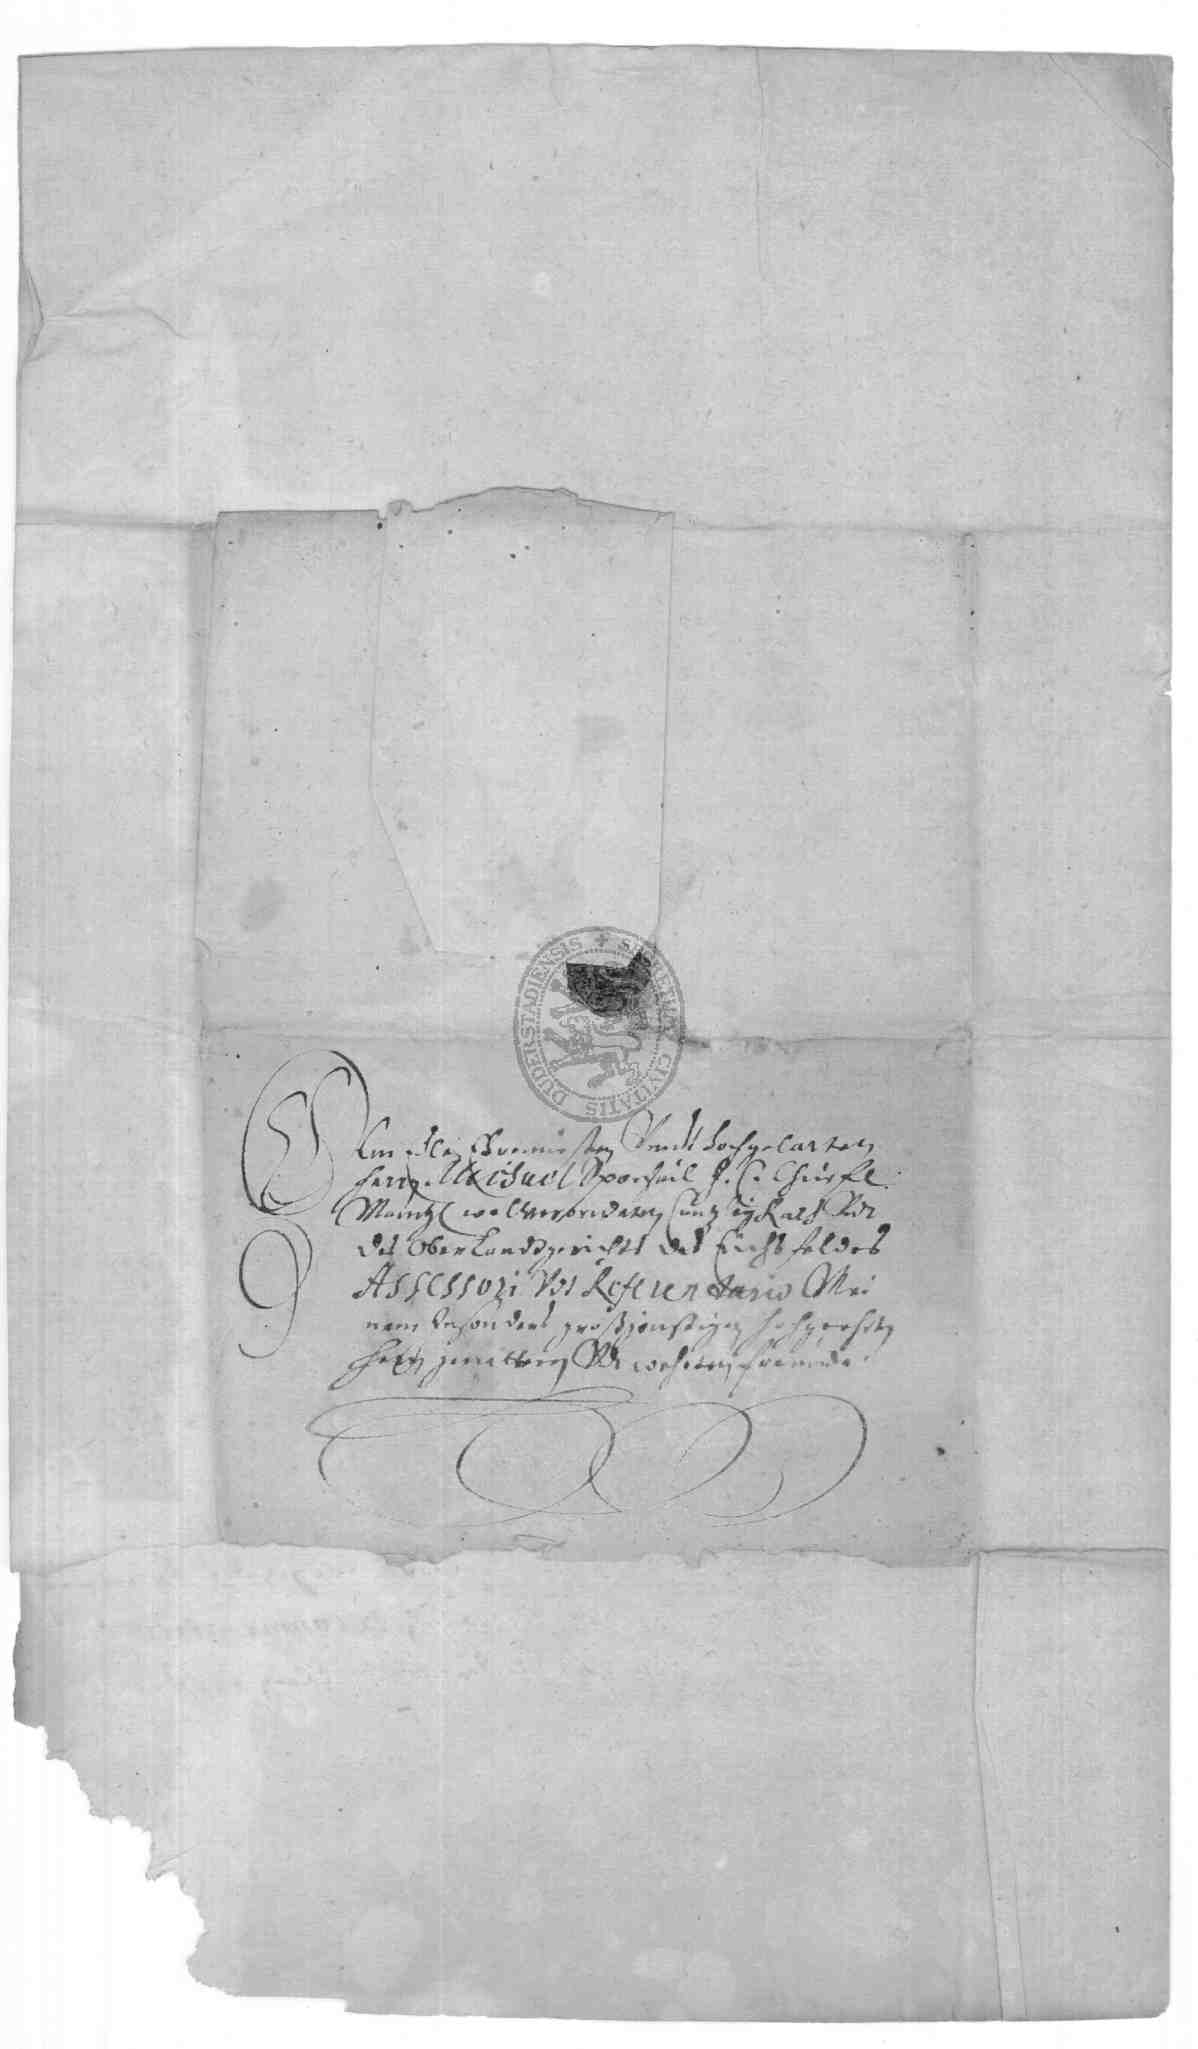 SIGILLUM CIVITATIS DUDERSTADIENSIS
Dem Edlen Ehrenvesten Vndt Hochgelarten
Herrn Michael Sporhuil J. C. Churfl.
Maintz. wolverordeneten Rath Vndt
des OberLandtgerichts des Eichsfeldes
Assessori Vndt Referendario Mei
nem besonders großgünstigen hochgeehrten
Herrn Vndt wehrten freunde